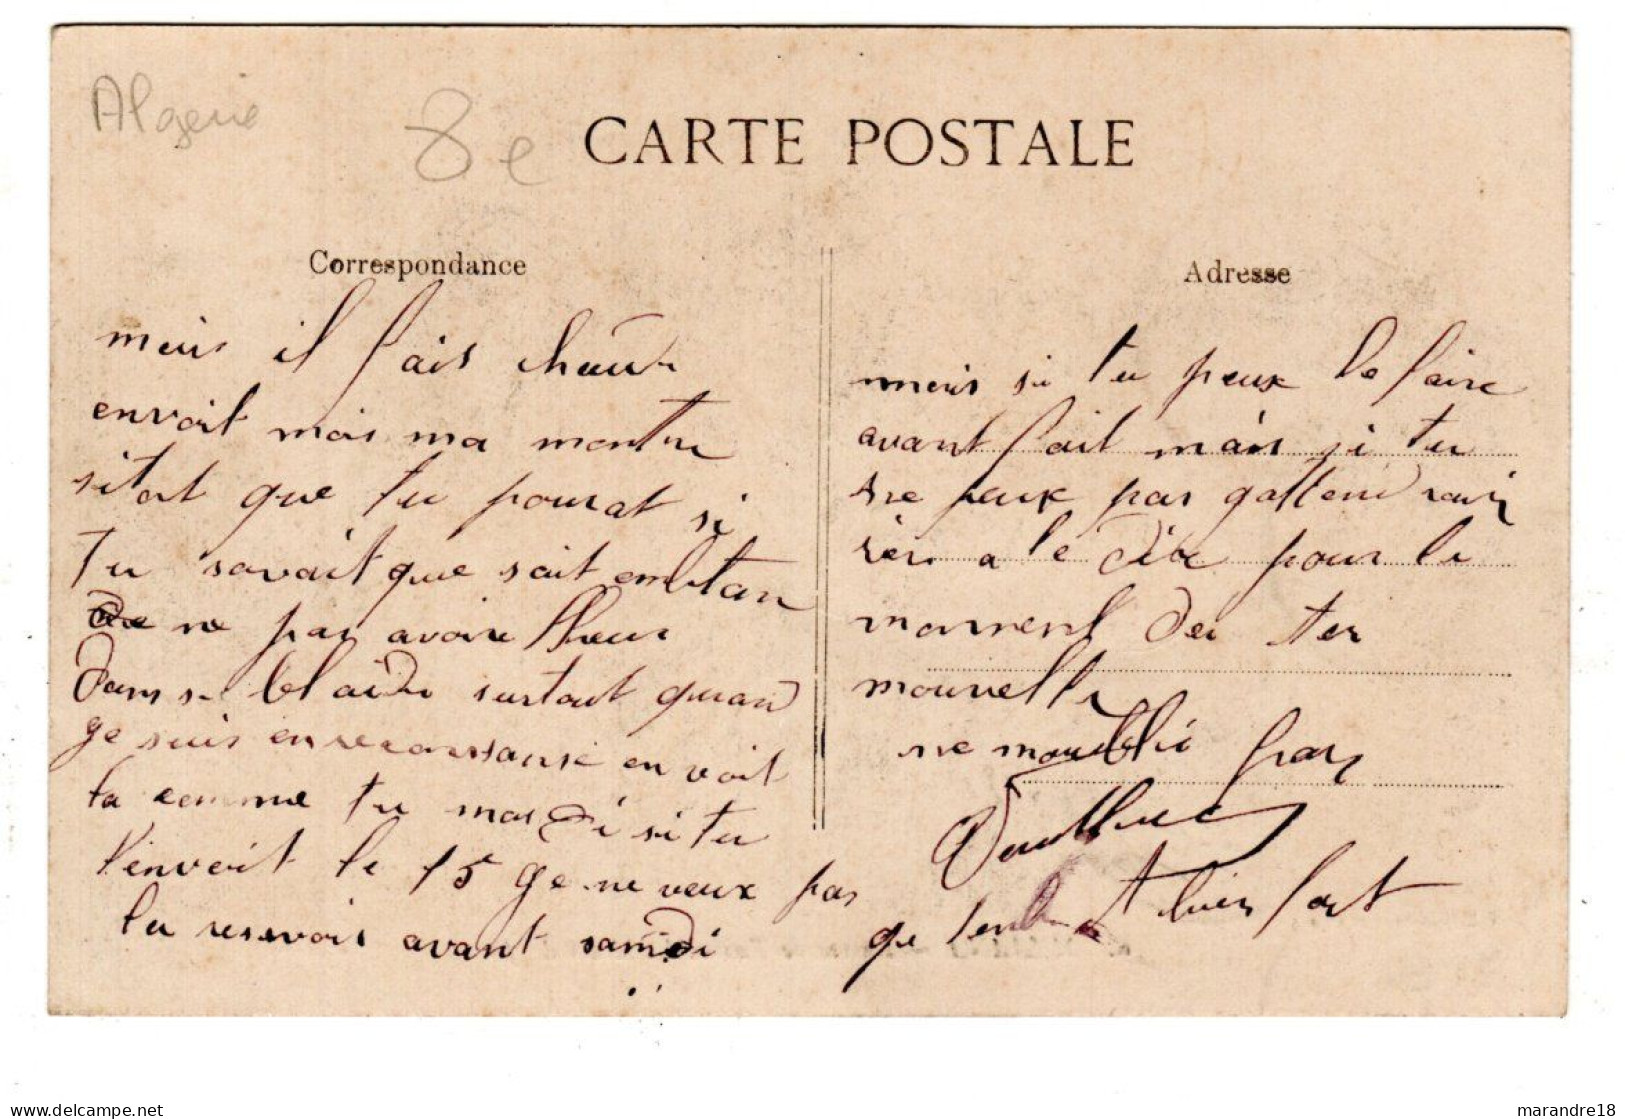 Algerie
8e
CARTE POSTALE
Correspondance
mais il fais chaud
envoit mois ma montre
sitot que tu pourat si
tu savait que sait embtan
de ne pas avoire lheur
dans se blaidi surtout quand
ge suis en reconnsanse en voit
la comme tu mas di si tu
lenvoit le 15 ge ne veux pas
la resevois avant samdi
Adresse
mais si tu peux le faire
avant fait mais si tu
ne peux pas gattend
rien a te dire pour le
moment der ter
nouvelle
ne moublie pas
ge tenb bien fort
marandre18